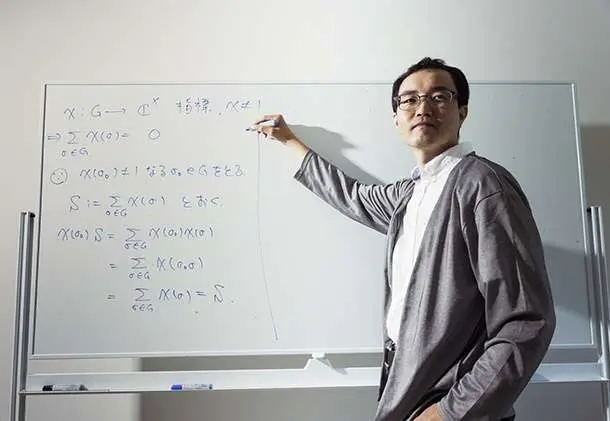 χ : G → ℂ^× 指標, χ≠1
⇒ Σ_{σ∈G} χ(σ) = 0
∵ χ(σ₀)≠1 なる σ₀∈G をとる
S := Σ_{σ∈G} χ(σ) とおく.
χ(σ₀)S = Σ_{σ∈G} χ(σ₀)χ(σ)
= Σ_{σ∈G} χ(σ₀σ)
= Σ_{σ∈G} χ(σ) = S.